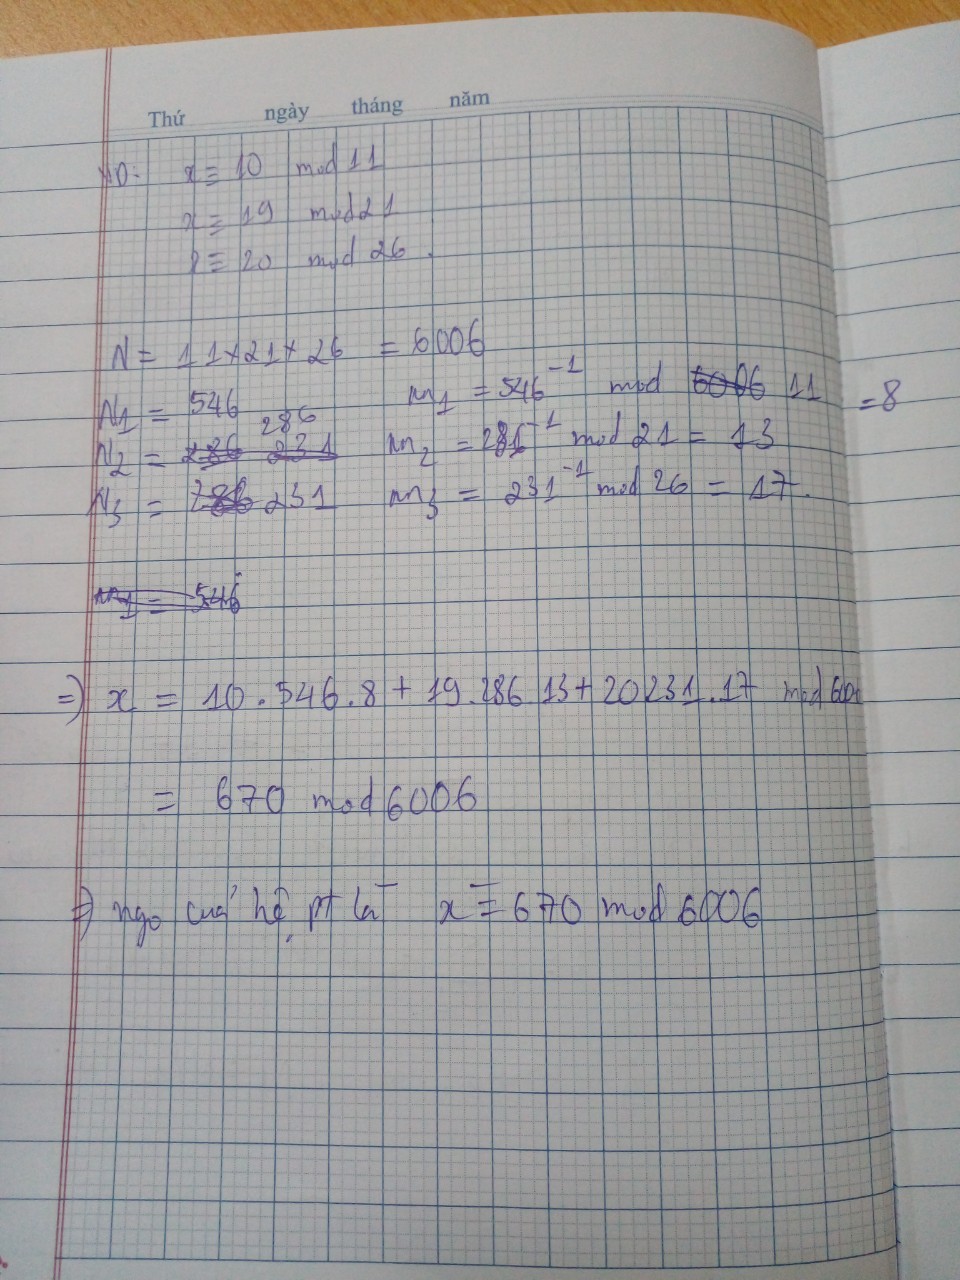 Thứ ngày tháng năm
VD: x ≡ 10 mod 11
x ≡ 19 mod 21
x ≡ 20 mod 26.
N = 11×21×26 = 6006
N1 = 546 m1 = 546^-1 mod 6006 11 = 8
N2 = 286 231 286 m2 = 281^-1 mod 21 = 13
N3 = 286 231 m3 = 231^-1 mod 26 = 17.
m1 = 546
=) x = 10.546.8 + 19.286.13 + 20 231.17 mod 600
= 670 mod 6006
=) ngo của hệ pt là x ≡ 670 mod 6006